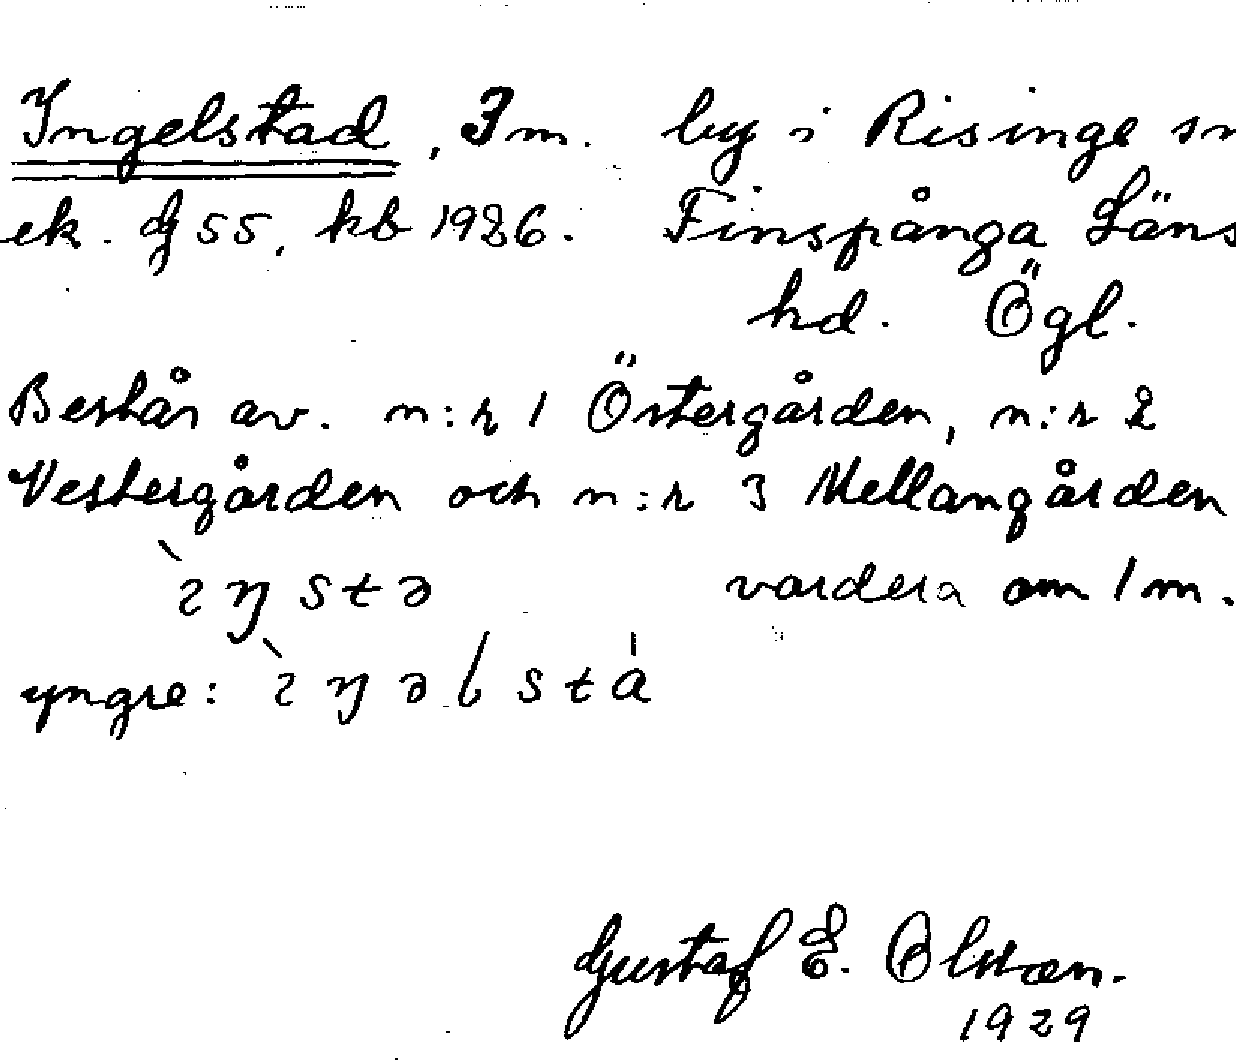 Ingelstad, 3 m. by i Risinge sn
ek. dj 55, kb 1926. Finspånga Läns
hd. Ögl.
Består av. n:r 1 Östergården, n:r 2
Vestergården och n:r 3 Mellangården
vardera om 1 m.
yngre:
Gustaf E. Olsson.
1929